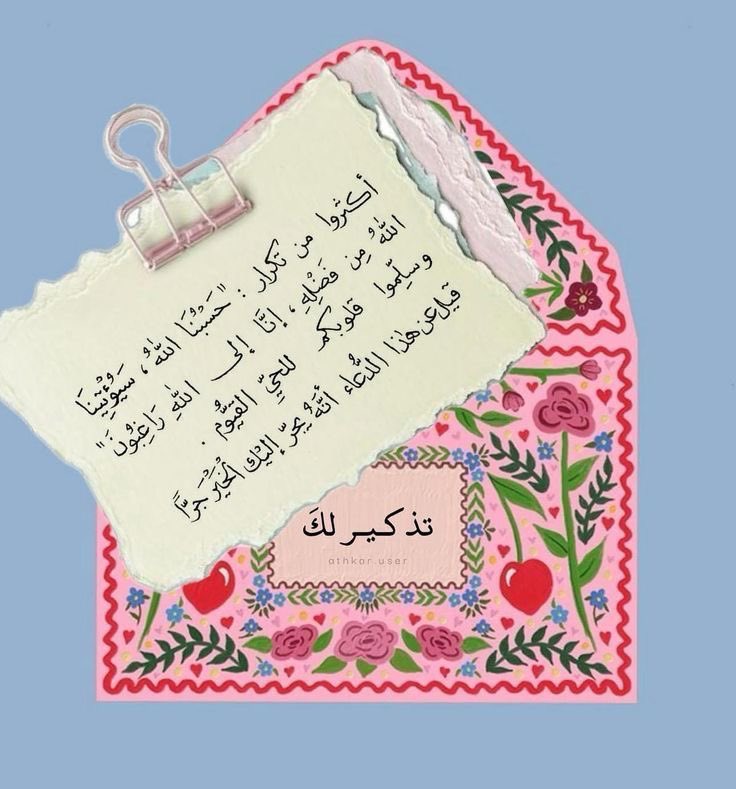 أكثروا من تكرار : "حَسْبُنَا اللّٰهُ ، سَيُؤْتِينَا
اللّٰهُ مِن فَضْلِهِ ، إنَّا إلى اللّٰهِ رَاغِبُونَ"
وسلِّموا قلوبكم للحيِّ القيُّوم .
قيل عن هٰذا الدُّعاء أنَّهُ يجرّ إليْك الْخَيْرَ جَرًّا
تذكير لكَ
athkar.user